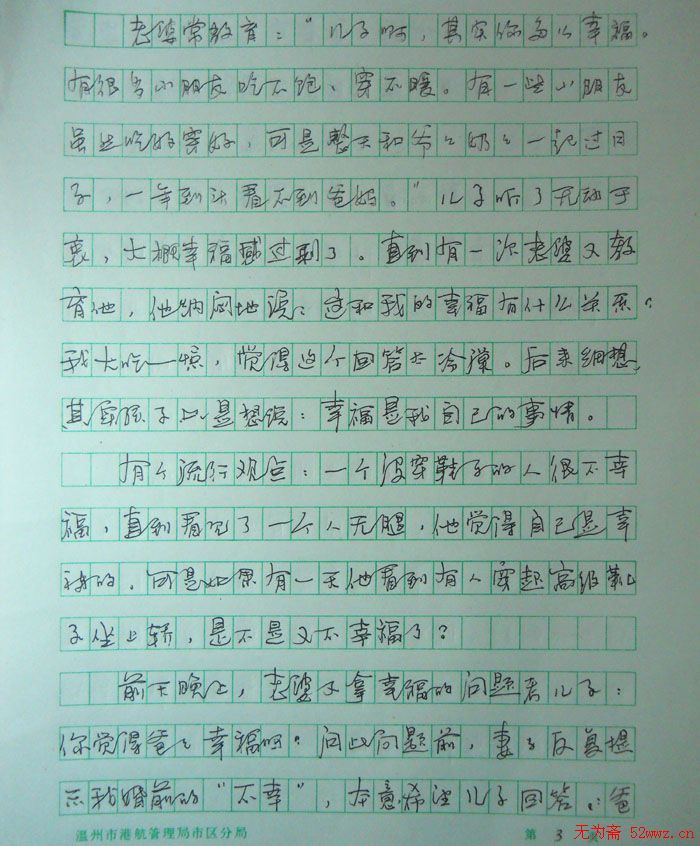 老婆常教育："儿子啊，其实你多么幸福。
有很多小朋友吃不饱、穿不暖。有一些小朋友
虽然吃好穿好，可是整天和爷爷奶奶一起过日
子，一年到头看不到爸妈。"儿子听了无动于
衷，大概幸福感过剩了。直到有一次老婆又教
育他，他纳闷地说：这和我的幸福有什么关系？
我大吃一惊，觉得这个回答太冷漠。后来细想，
其实孩子只是想说：幸福是我自己的事情。
有个流行观点：一个没穿鞋子的人很不幸
福，直到看见了一个人无腿，他觉得自己是幸
福的。可是如果有一天他看到有人穿起高级靴
子坐上轿，是不是又不幸福了？
前天晚上，老婆又拿幸福的问题考儿子：
你觉得爸爸幸福吗？问此问题前，妻子反复提
示我婚前的"不幸"，本意希望儿子回答：爸
温州市港航管理局市区分局 第 3 页
无为斋 52wwz.cn